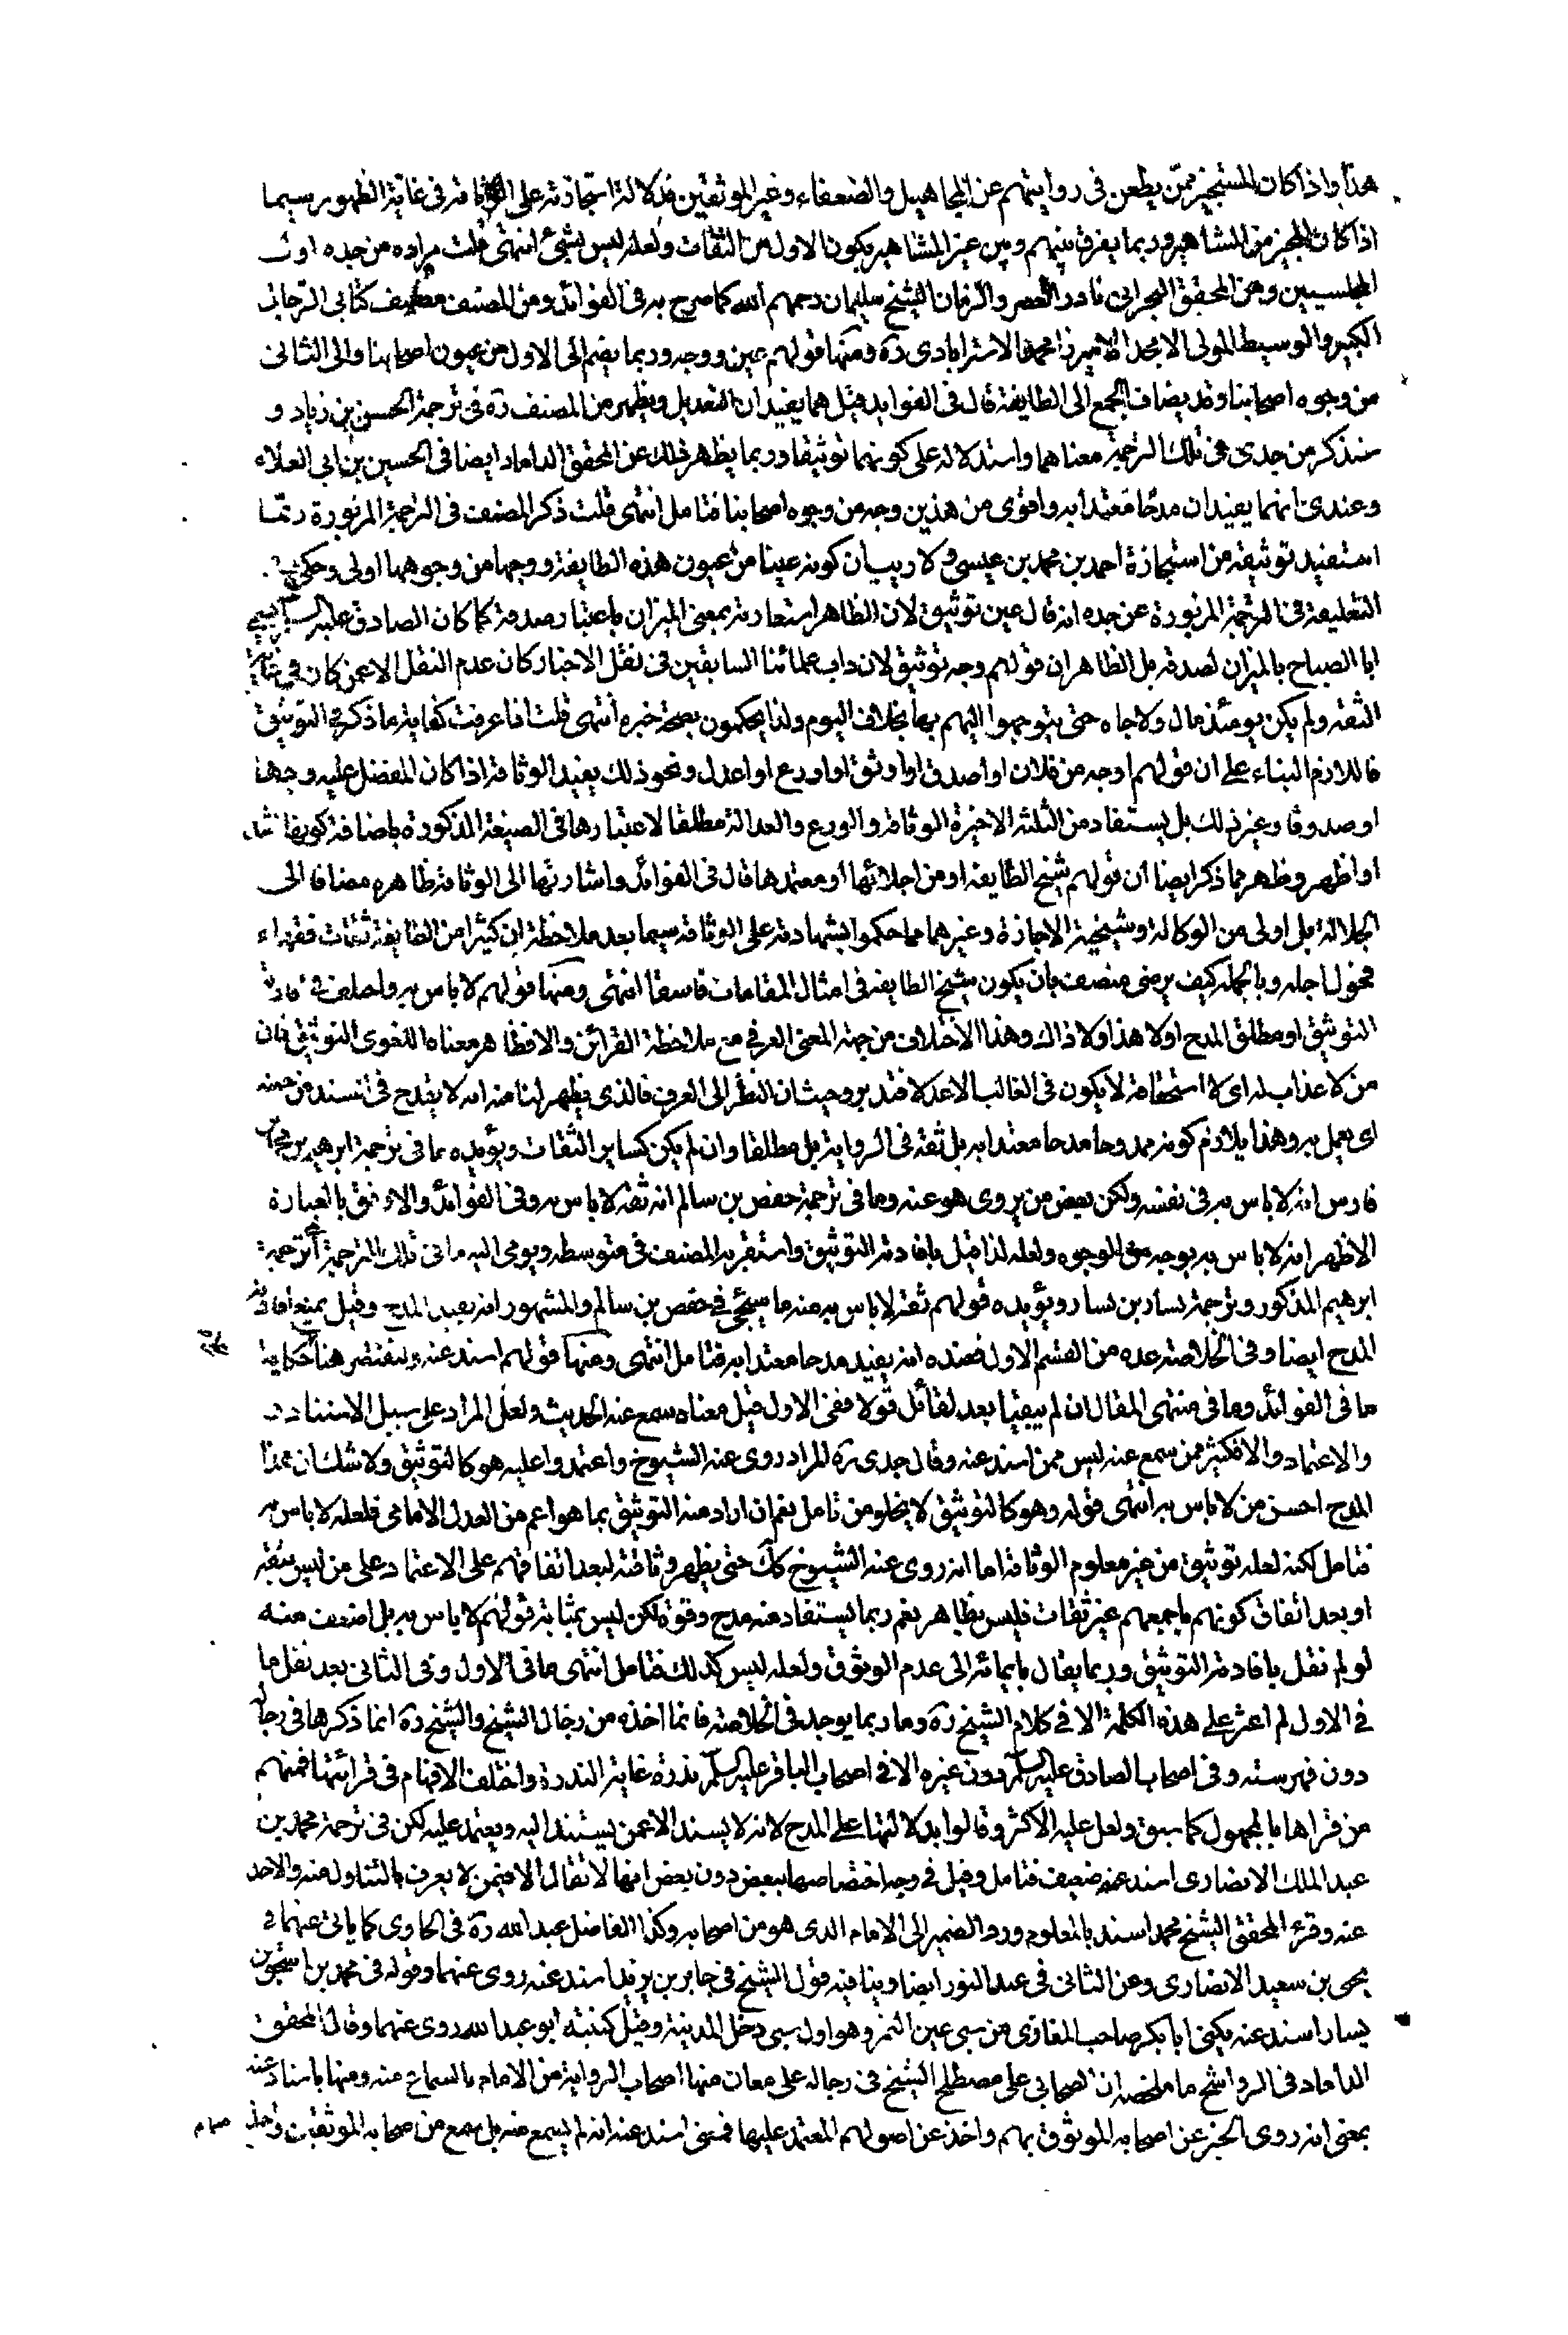 هذا واذا كان المستجيز ممن يطعن فى روايتهم عن المجاهيل والضعفاء وغير الموثقين فدلالة استجازته على الوثاقة فى غاية الظهور سيما
اذا كان المجيز من المشاهير وربما يفرق بينهم وبين غير المشاهير بكون الاول من الثقات ولعله ليس بشئ انتهى قلت مراده من جده اول
المجلسيين ومن المحقق البحرانى نادر العصر والزمان الشيخ سليمان رحمهم الله كما صرح به فى الفوائد ومن المصنف مصنف كتابى الرجال
الكبير والوسيط المولى الامجد الاميرزا محمد الاسترابادى ره ومنها قولهم عين ووجه وربما يضم الى الاول من عيون اصحابنا والى الثانى
من وجوه اصحابنا وقد يضاف الجمع الى الطايفة قال فى الفوايد قيل هما يفيدان التعديل ويظهر من المصنف ره فى ترجمة الحسن بن زياد و
سنذكر من جدى فى تلك الترجمة معناهما واستدلاله على كونهما توثيقا وربما يظهر ذلك عن المحقق الداماد ايضا فى الحسين بن ابى العلاء
وعندى انهما يفيدان مدحا معتدا به واقوى من هذين وجه من وجوه اصحابنا فتامل انتهى قلت ذكر المصنف فى الترجمة المزبورة ربما
استفيد توثيقه من استجازة احمد بن محمد بن عيسى ولا ريب ان كونه عينا من عيون هذه الطايفة ووجها من وجوهها اولى وحكى فى
التعليقة فى الترجمة المزبورة عن جده انه قال عين توثيق لان الظاهر استعارته بمعنى الميزان باعتبار صدقه كما كان الصادق عليه السلام يسمى
ابا الصباح بالميزان لصدقه بل الظاهر ان قولهم وجه توثيق لان داب علمائنا السابقين فى نقل الاخبار كان عدم النقل الا عمن كان فى غاية
الثقة ولم يكن يومئذ مال ولا جاه حتى يتوجهوا اليهم بها بخلاف اليوم ولذا يحكمون بصحة خبره انتهى قلت اذا عرفت كفاية ما ذكر فى التوثيق
فاللازم البناء على ان قولهم اوجه من فلان او اصدق او اوثق او اورع او اعدل ونحو ذلك يفيد الوثاقة اذا كان المفضل عليه وجها
او صدوقا وغير ذلك بل يستفاد من الثلثة الاخيرة الوثاقة والورع والعدالة مطلقا لاعتبارها فى الصيغة المذكورة باضافة كونها
او اظهر وظهر مما ذكر ايضا ان قولهم شيخ الطايفة او من اجلائها او معتمدها قال فى الفوائد واشارتها الى الوثاقة ظاهرة مضافا الى
الجلالة بل اولى من الوكالة وشيخية الاجازة وغيرهما مما حكموا بشهادته على الوثاقة سيما بعد ملاحظة ان كثيرا من الطايفة ثقات فقهاء
فحول اجلة وبالجملة كيف يرضى منصف بان يكون شيخ الطايفة فى امثال المقامات فاسقا انتهى ومنها قولهم لا باس به واختلف فى افادته
التوثيق او مطلق المدح او لا هذا ولا ذاك وهذا الاختلاف من جهة المعنى العرفى مع ملاحظة القرائن والا فظاهر معناه اللغوى التوثيق فان
من لا عذاب له اى لا استحقاقه لا يكون فى الغالب الا عدلا فتدبر وحيث ان النظر الى العرف فالذى يظهر لنا منه انه لا يقدح فى السند من جهته
اى يعمل به وهذا يلازم كونه ممدوحا مدحا معتدا به بل ثقة فى الرواية بل مطلقا وان لم يكن كساير الثقات ويؤيده ما فى ترجمة ابرهيم بن محمد بن
فارس انه لا باس به فى نفسه ولكن بعض من يروى هو عنه وما فى ترجمة حفص بن سالم انه ثقة لا باس به وفى الفوائد والاوفق بالعبارة
الاظهر انه لا باس به بوجه من الوجوه ولعله لذا قيل بافادته التوثيق واستقربه المصنف فى متوسطه ويومى اليه ما فى تلك الترجمة اى ترجمة
ابرهيم المذكور وترجمة بشار بن يسار ويؤيده قولهم ثقة لا باس به منه ما سيجئ فى حفص بن سالم والمشهور انه يفيد المدح وقيل بمنع افادته
المدح ايضا وفى الخلاصة عده من القسم الاول فعنده انه يفيد مدحا معتدا به فتامل انتهى ومنها قولهم اسند عنه ولنقتصر هنا بحكاية
ما فى الفوائد وما فى منتهى المقال ان لم يبقيا بعد لقائل قولا ففى الاول قيل معناه سمع عنه الحديث ولعل المراد على سبيل الاستناد
والاعتماد والا فكثير ممن سمع عنه ليس ممن اسند عنه وقال جدى ره المراد روى عنه الشيوخ واعتمدوا عليه هو كالتوثيق ولا شك ان هذا
المدح احسن من لا باس به انتهى قوله وهو كالتوثيق لا يخلو من تامل نعم ان اراد منه التوثيق بما هو اعم من العدل الامامى فلعله لا باس به
فتامل لكنه لعله توثيق من غير معلوم الوثاقة اما انه روى عنه الشيوخ كك حتى يظهر وثاقته لبعد اتفاقهم على الاعتماد على من ليس بثقة
او بعد اتفاق كونهم باجمعهم غير ثقات فليس بظاهر نعم ربما يستفاد منه مدح وقوة لكن ليس بمثابة قولهم لا باس به بل اضعف منه
لو لم نقل بافادته التوثيق وربما يقال بايمائه الى عدم الوثوق ولعله ليس كذلك فتامل انتهى ما فى الاول وفى الثانى بعد نقل ما
فى الاول لم اعثر على هذه الكلمة الا فى كلام الشيخ ره وما ربما يوجد فى الخلاصة فانما اخذه من رجال الشيخ والشيخ ره انما ذكرها فى رجاله
دون فهرسته وفى اصحاب الصادق عليه السلم دون غيره الا فى اصحاب الباقر عليه السلم ندرة غاية الندرة واختلف الافهام فى قرائتها فمنهم
من قراها بالمجهول كما سبق ولعل عليه الاكثر وقالوا بدلالتها على المدح لانه لا يسند الا عمن يستند اليه ويعتمد عليه لكن فى ترجمة محمد بن
عبد الملك الانصارى اسند عنه ضعيف فتامل وقيل فى وجه اختصاصها ببعض دون بعض انها لا تقال الا فيمن لا يعرف بالتناول منه والاخذ
عنه وقرء المحقق الشيخ محمد اسند بالمعلوم ورد الضمير الى الامام الذى هو من اصحابه وكذا الفاضل عبد الله ره فى الحاوى كما ياتى عنهما فى
يحيى بن سعيد الانصارى وعن الثانى فى عبد النور ايضا وينافيه قول الشيخ فى جابر بن يزيد اسند عنه روى عنهما وقوله فى محمد بن اسحق بن
يسار اسند عنه يكنى ابا بكر صاحب المغازى من سبى عين التمر وهو اول سبى دخل المدينة وقيل كنيته ابو عبد الله روى عنهما وقال المحقق
الداماد فى الرواشح ما ملخصه ان الصحابى على مصطلح الشيخ فى رجاله على معان منها اصحاب الرواية من الامام بالسماع منه ومنها باسناد عنه
بمعنى انه روى الخبر عن اصحابه الموثوق بهم واخذ عن اصولهم المعتمد عليها فمعنى اسند عنه انه لم يسمع منه بل سمع من اصحابه الموثقين واخذ